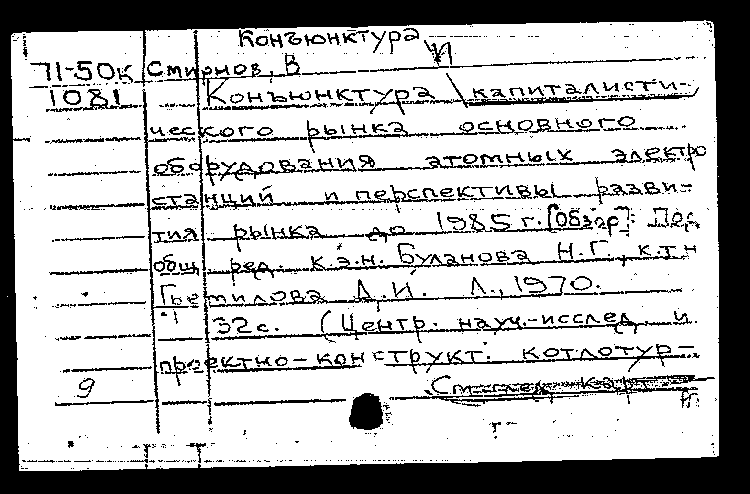 Конъюнктура
И
71-50к Смирнов, В
1081 Конъюнктура капиталисти-
ческого рынка основного
оборудования атомных электро
станций и перспективы разви-
тия рынка до 1985 г. [Обзор]. Под
общ ред. к.э.н. Буланова Н.Г., к.т.н
Л.И. Л., 1970.
32 с. (Центр. науч.-исслед и
проектно-конструкт. котлотур-
9 См. след карт